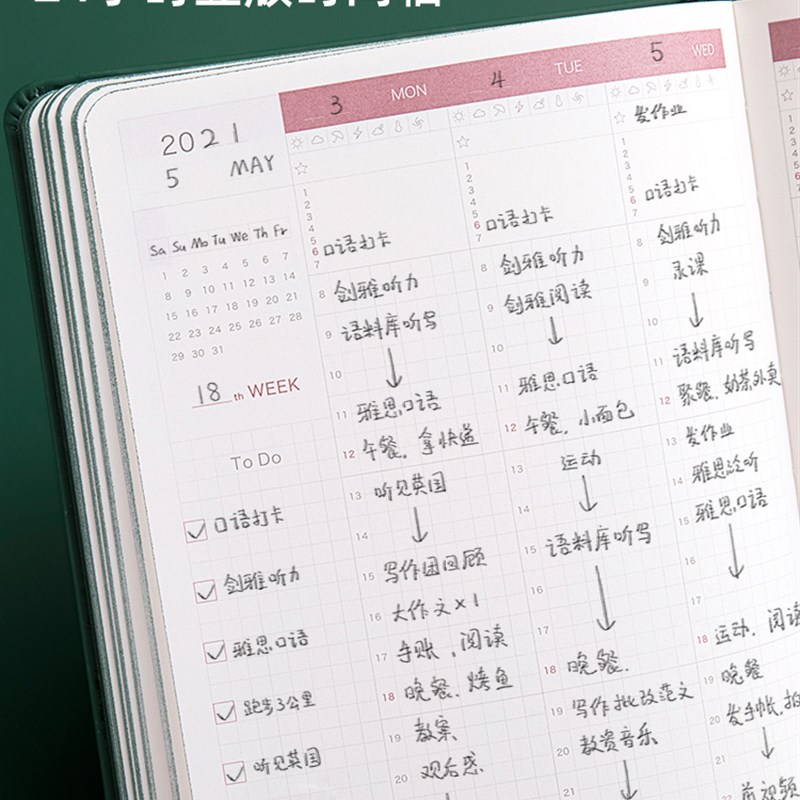 2021
5 MAY
Sa Su Mo Tu We Th Fr
1 2 3 4 5 6 7
8 9 10 11 12 13 14
15 16 17 18 19 20 21
22 23 24 25 26 27 28
29 30 31
18 th WEEK
To Do
口语打卡
剑雅听力
雅思口语
跑步3公里
听见英国
3 MON
1
2
3
4
5
6 口语打卡
7
8 剑雅听力
9 语料库听写
10
11 雅思口语
12 午餐，拿快递
13 听见英国
14
15 写作团回顾
16 大作文×1
17 手账，阅读
18 晚餐，烤鱼
19 教案
20 观后感
4 TUE
1
2
3
4
5
6 口语打卡
7
8 剑雅听力
9 剑雅阅读
10
11 雅思口语
12 午餐，小面包
13 运动
14
15 语料库听写
16
17
18 晚餐.
19 写作批改范文
20 教资音乐
21
5 WED
发作业
1
2
3
4
5
6 口语打卡
7
8 剑雅听力
9 录课
10
11 语料库听写
12 聚餐，奶茶外卖
13 发作业
14 雅思泛听
15 雅思口语
16
17
18 运动，阅读
19 晚餐
20 发手帐，
21
22
1
2
3
4
5
6
7